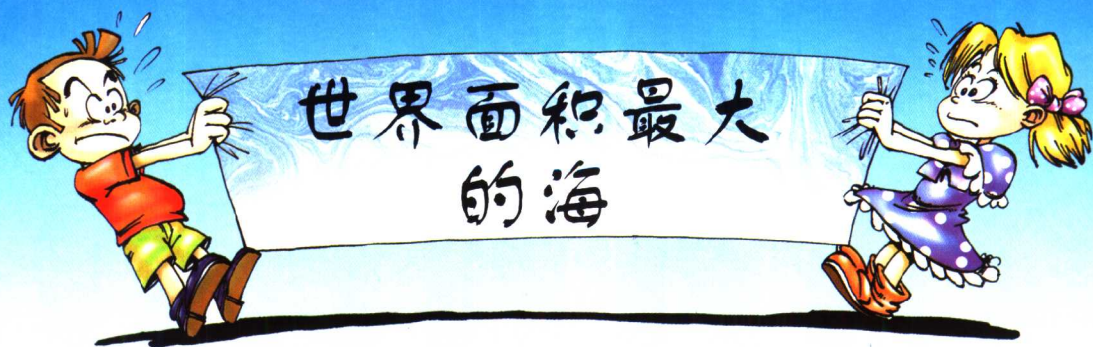 世界面积最大
的海